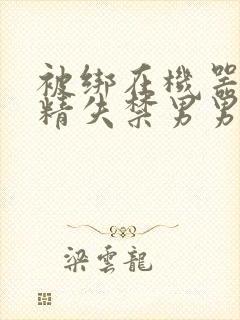 被绑在機器
精失禁男男
梁雲龍